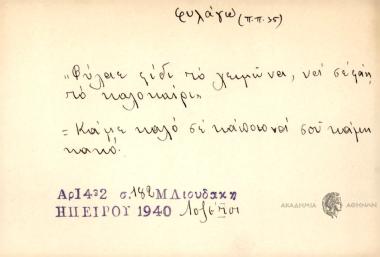 φυλάγω (π.π. 35)
"Φύλαε φίδι τὸ χειμῶνα, ναὶ σὲ φάῃ
τὸ καλοκαίρι"
= Κάμε καλὸ σὲ κάποιο ναὶ σοῦ κάμῃ
κακό.
Αρ1432 σ. 182 Μ Λιουδακη
ΗΠΕΙΡΟΥ 1940 Λοζέτσι
ΑΚΑΔΗΜΙΑ ΑΘΗΝΩΝ